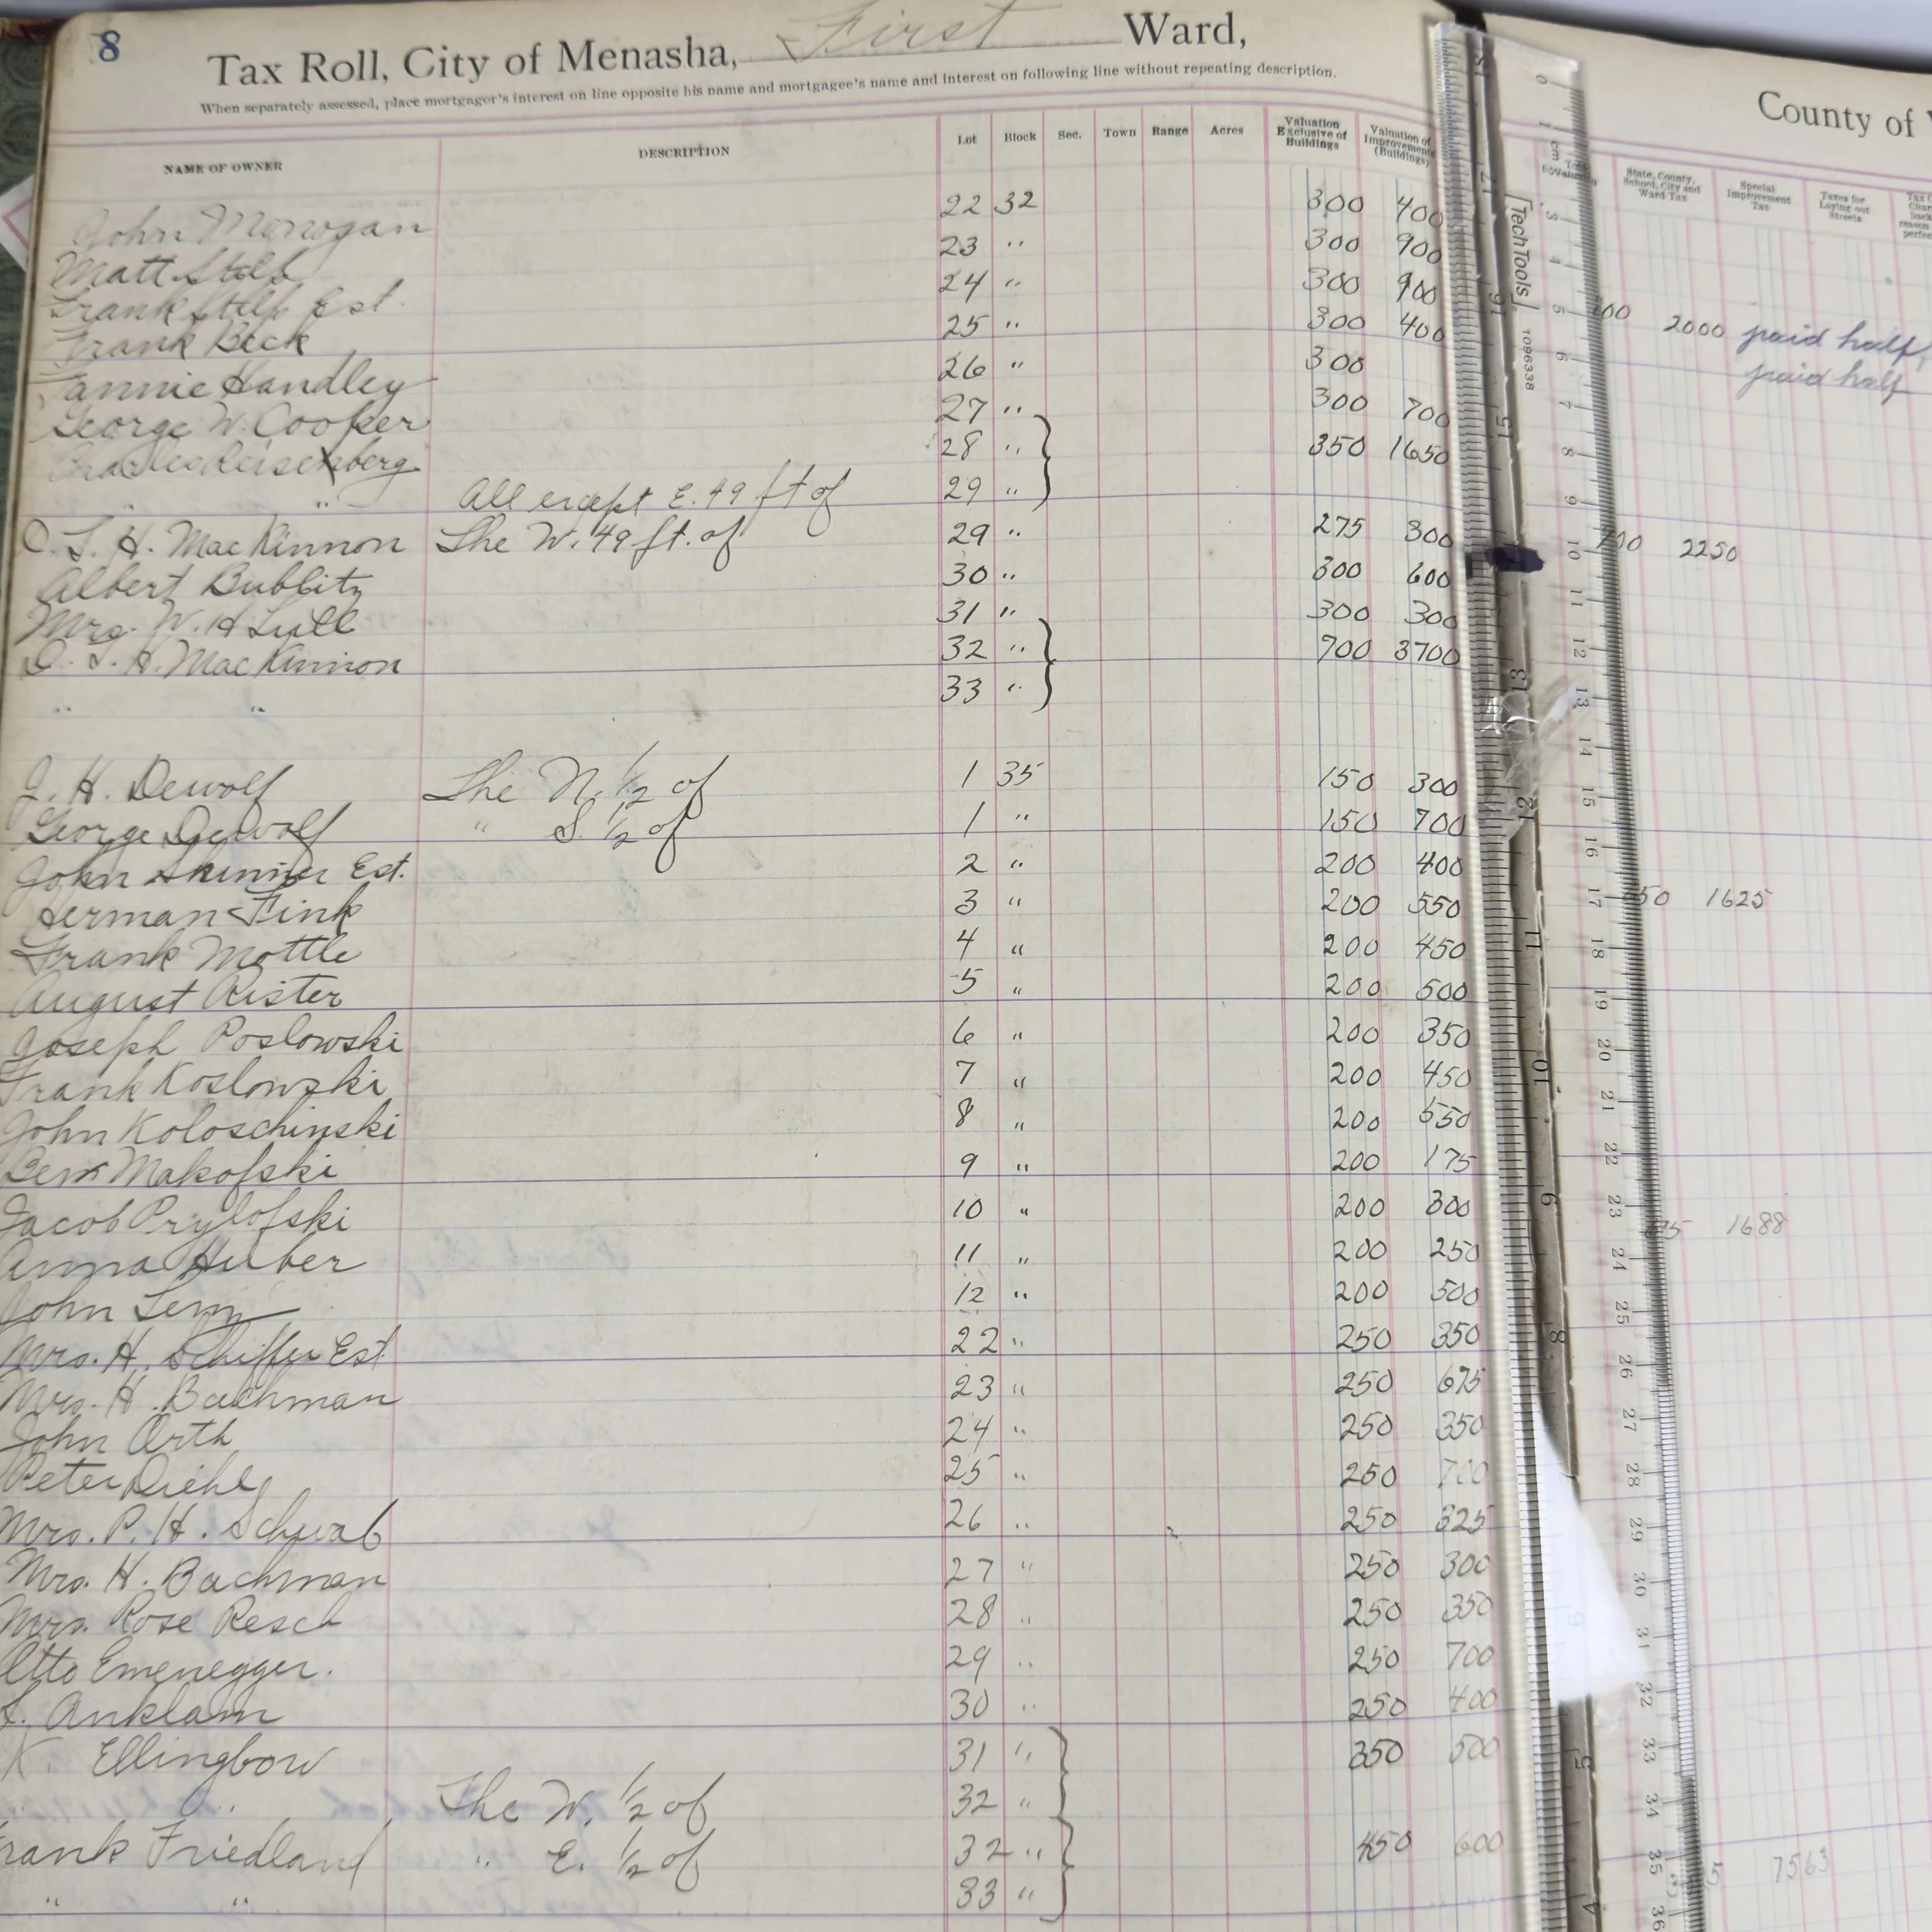 8
Tax Roll, City of Menasha, First Ward,
When separately assessed, place mortgagor's interest on line opposite his name and mortgagee's name and interest on following line without repeating description.
County of
NAME OF OWNER DESCRIPTION Lot Block Sec. Town Range Acres Valuation Exclusive of Buildings Valuation of Improvements (Buildings)
State, County, School, City and Ward Tax Special Improvement Tax Taxes for Laying out Streets
John Monogan 22 32 300 400
Matt Stilp 23 " 300 900
Frank Stilp Est. 24 " 300 900
Frank Beck 25 " 300 400 2000 paid half,
Fannie Handley 26 " 300 paid half
George W. Cooker 27 " 300 700
Charles Reisenberg 28 " 350 1650
" " All except E. 49 ft of 29 "
O. L. H. MacKinnon The W. 49 ft. of 29 " 275 300 2250
Albert Bublitz 30 " 300 600
Mrs. W. H Lull 31 " 300 300
O. L. H. MacKinnon 32 " 700 3700
" " 33 "
J. H. Dewolf The N. 1/2 of 1 35 150 300
George Dewolf " S. 1/2 of 1 " 150 700
John Skinner Est. 2 " 200 400
Herman Fink 3 " 200 550 1625
Frank Mottle 4 " 200 450
August Rister 5 " 200 500
Joseph Poslowski 6 " 200 350
Frank Koslowski 7 " 200 450
John Koloschinski 8 " 200 550
Ben Makofski 9 " 200 175
Jacob Prylofski 10 " 200 300 1688
Anna Huber 11 " 200 250
John Lem 12 " 200 500
Mrs. H. Schiffer Est. 22 " 250 350
Mrs. H. Bachman 23 " 250 675
John Orth 24 " 250 350
Peter Diehl 25 " 250 700
Mrs. P. H. Schwab 26 " 250 325
Mrs. H. Bachman 27 " 250 300
Mrs. Rose Resch 28 " 250 350
Otto Emenegger. 29 " 250 700
Anklam 30 " 250 400
K. Ellingbow 31 " 350 500
" " The W. 1/2 of 32 "
rank Friedland " E. 1/2 of 32 " 450 600 7563
" " 33 "
TechTools
1096338